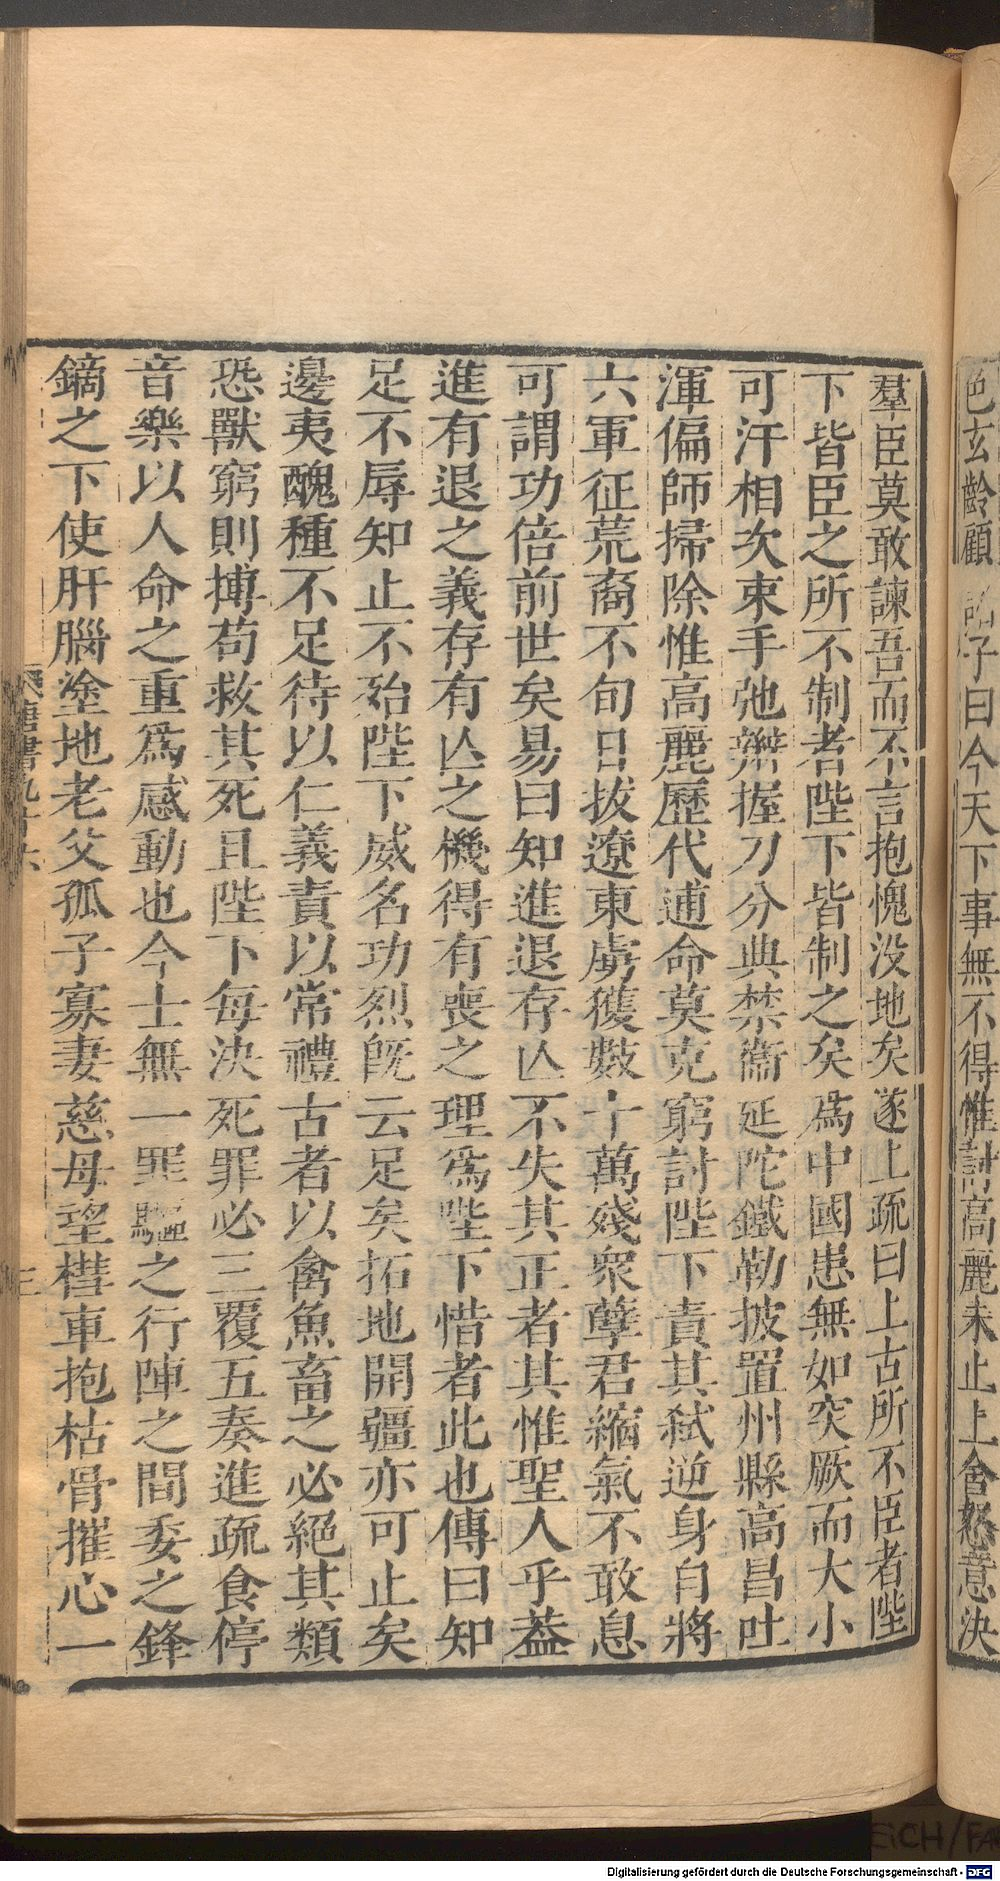 色玄齡顧諸子曰今天下事無不得惟討高麗未止上含怒意決
羣臣莫敢諫吾而不言抱愧没地矣遂上疏曰上古所不臣者陛
下皆臣之所不制者陛下皆制之矣爲中國患無如突厥而大小
可汗相次束手弛辮握刀分典禁衞延陀鐵勒披置州縣高昌吐
渾偏師掃除惟高麗歷代逋命莫克窮討陛下責其弑逆身自將
六軍征荒裔不旬日拔遼東虜獲數十萬殘衆孽君縮氣不敢息
可謂功倍前世矣易曰知進退存亾不失其正者其惟聖人乎蓋
進有退之義存有亾之機得有喪之理爲陛下惜者此也傳曰知
足不辱知止不殆陛下威名功烈旣云足矣拓地開疆亦可止矣
邊夷醜種不足待以仁義責以常禮古者以禽魚畜之必絕其類
恐獸窮則搏苟救其死且陛下每決死罪必三覆五奏進疏食停
音樂以人命之重爲感動也今士無一罪驅之行陣之間委之鋒
鏑之下使肝腦塗地老父孤子寡妻慈母望槥車抱枯骨摧心一
唐書九十六
三
Digitalisierung gefördert durch die Deutsche Forschungsgemeinschaft - DFG